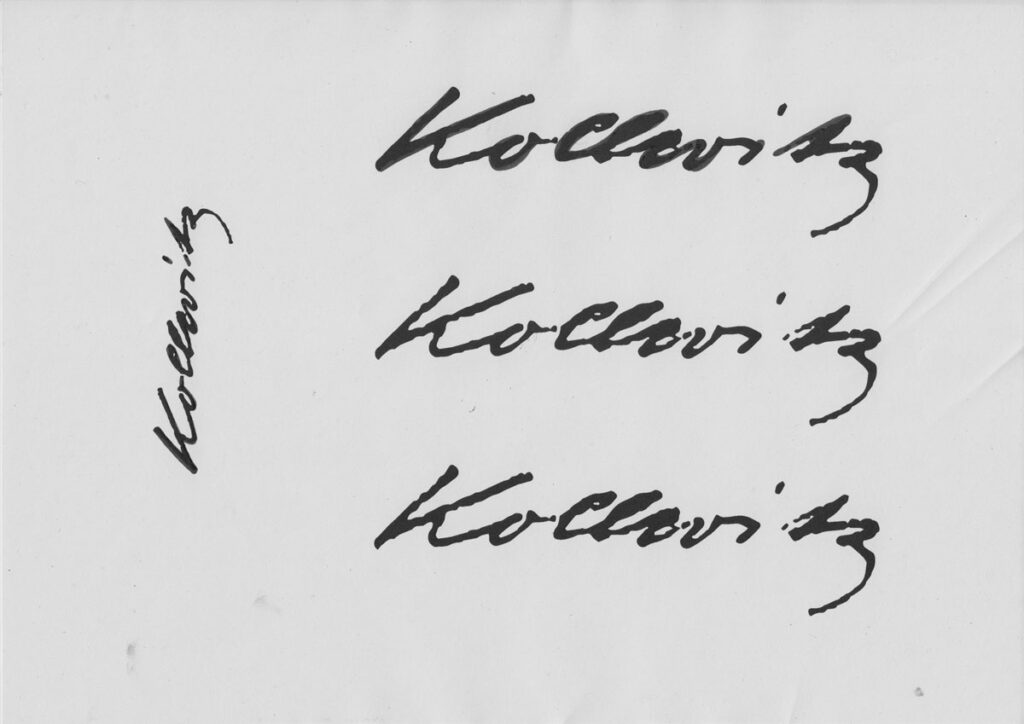 Kollwitz
Kollwitz
Kollwitz
Kollwitz